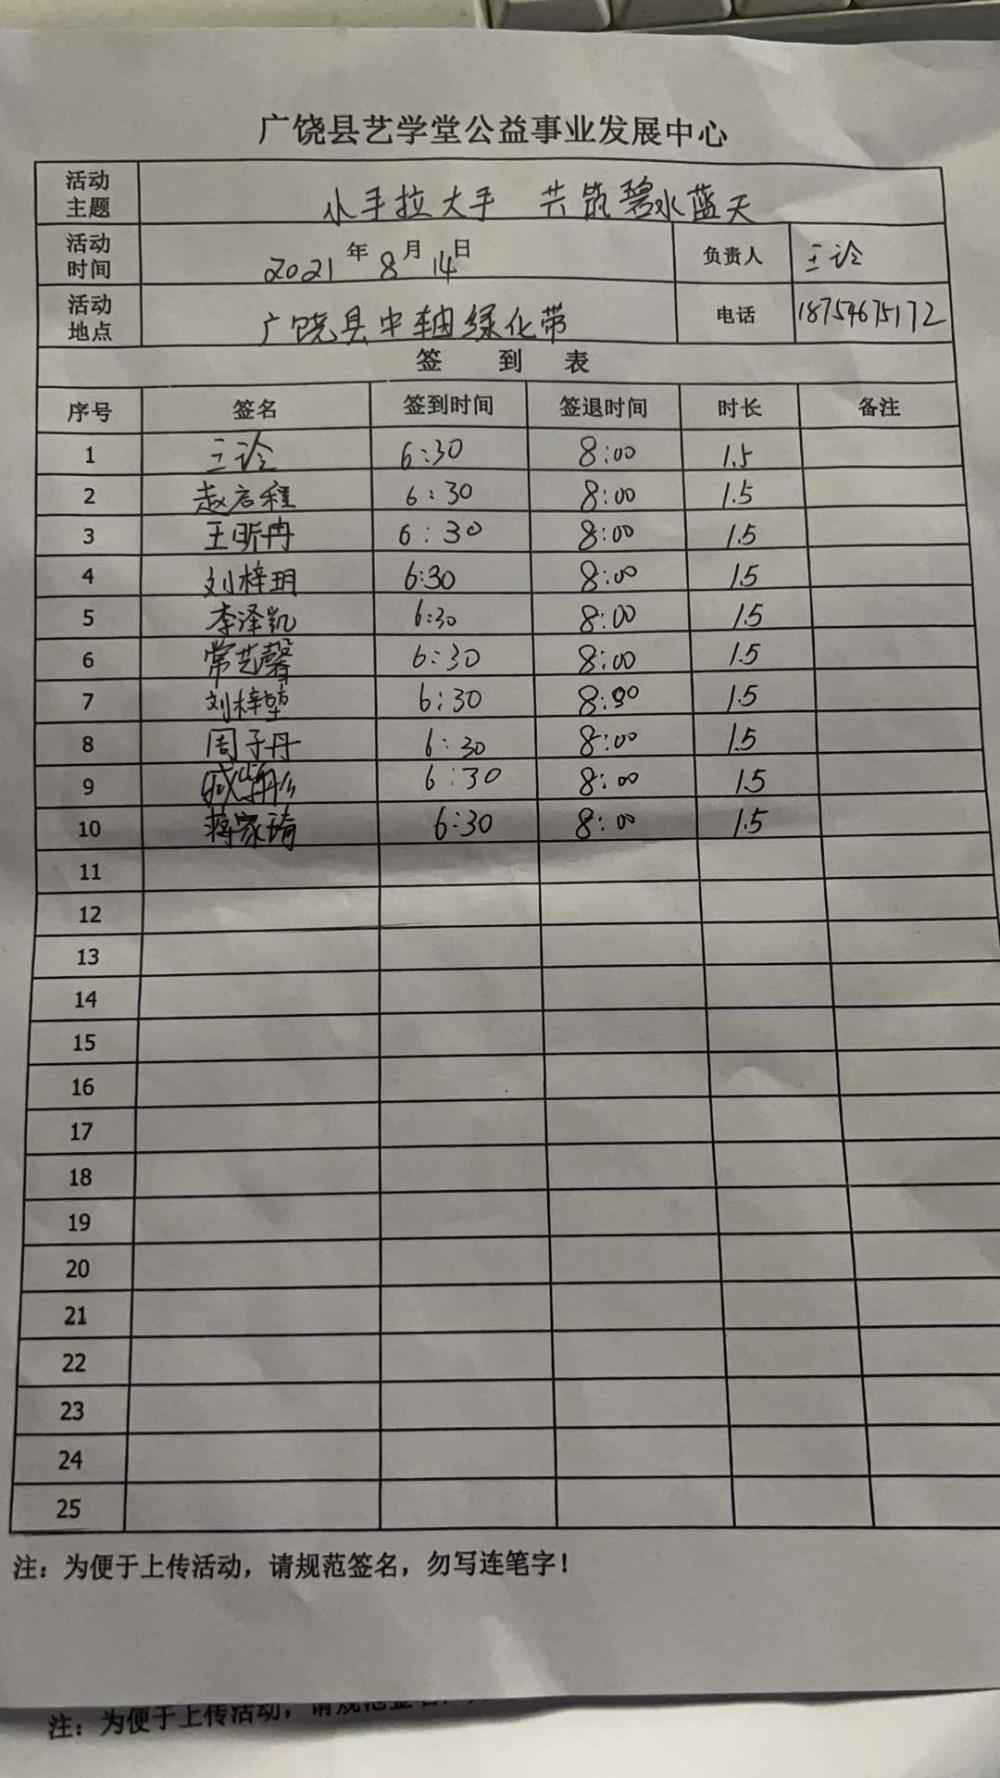 广饶县艺学堂公益事业发展中心
活动主题 小手拉大手 共筑碧水蓝天
活动时间 2021年8月14日 负责人 王诊
活动地点 广饶县中轴绿化带 电话 18754675172
签到表
序号 签名 签到时间 签退时间 时长 备注
1 王诊 6:30 8:00 1.5
2 赵启程 6:30 8:00 1.5
3 王昕冉 6:30 8:00 1.5
4 刘梓玥 6:30 8:00 1.5
5 李泽凯 6:30 8:00 1.5
6 常艺馨 6:30 8:00 1.5
7 刘梓堃 6:30 8:00 1.5
8 周子丹 6:30 8:00 1.5
9 6:30 8:00 1.5
10 蒋家琦 6:30 8:00 1.5
11
12
13
14
15
16
17
18
19
20
21
22
23
24
25
注：为便于上传活动，请规范签名，勿写连笔字！
注：为便于上传活动，请规范签名，